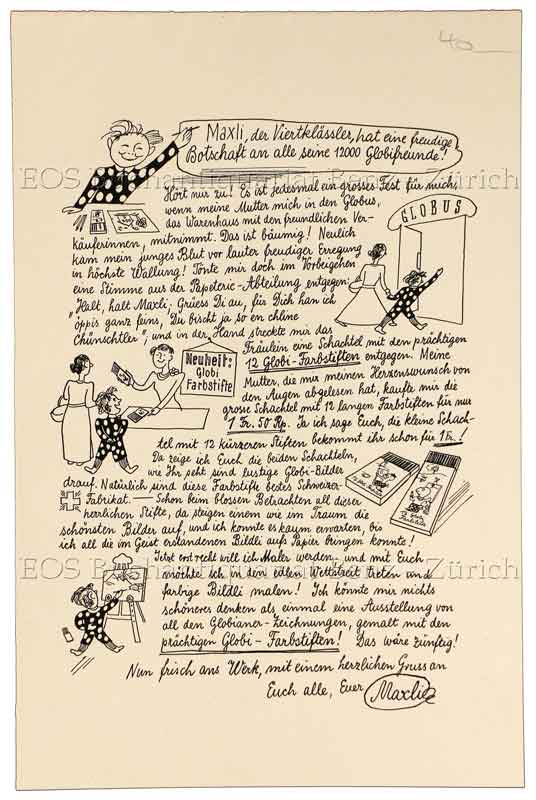 40
Maxli, der Viertklässler, hat eine freudige
Botschaft an alle seine 12000 Globifreunde!
EOS Buchantiquariat Benz, Zürich
Hört nur zu! Es ist jedesmal ein grosses Fest für mich,
wenn meine Mutter mich in den Globus,
das Warenhaus mit den freundlichen Ver-
GLOBUS
käuferinnen, mitnimmt. Das ist bäumig! Neulich
kam mein junges Blut vor lauter freudiger Erregung
in höchste Wallung! Tönte mir doch im Vorbeigehen
eine Stimme aus der Papeterie-Abteilung entgegen:
"Halt, halt Maxli, Grüess Di au, für Dich han ich
öppis ganz feins, Du bischt ja so en chline
Chünschtler"; und in der Hand streckte mir das
Fräulein eine Schachtel mit den prächtigen
12 Globi-Farbstiften entgegen. Meine
Neuheit:
Globi
Farbstifte
Mutter, die mir meinen Herzenswunsch von
den Augen abgelesen hat, kaufte mir die
grosse Schachtel mit 12 langen Farbstiften für nur
1 Fr. 50 Rp. Ja ich sage Euch, die kleine Schach-
tel mit 12 kürzeren Stiften bekommt ihr schon für 1 Fr.!
Da zeige ich Euch die beiden Schachteln,
wie Ihr seht sind lustige Globi-Bilder
drauf. Natürlich sind diese Farbstifte bestes Schweizer-
Fabrikat. — Schon beim blossen Betrachten all dieser
herrlichen Stifte, da steigen einem wie im Traum die
schönsten Bilder auf, und ich konnte es kaum erwarten, bis
ich all die im Geist erstandenen Bildli aufs Papier bringen konnte!
Jetzt erst recht will ich Maler werden und mit Euch
EOS Buchantiquariat Benz, Zürich
möchte ich in den edlen Wettstreit treten und
farbige Bildli malen! Ich könnte mir nichts
schöneres denken als einmal eine Ausstellung von
all den Globianer-Zeichnungen, gemalt mit den
prächtigen Globi-Farbstiften! Das wäre zünftig!
Nun frisch ans Werk, mit einem herzlichen Gruss an
Euch alle, Euer Maxli